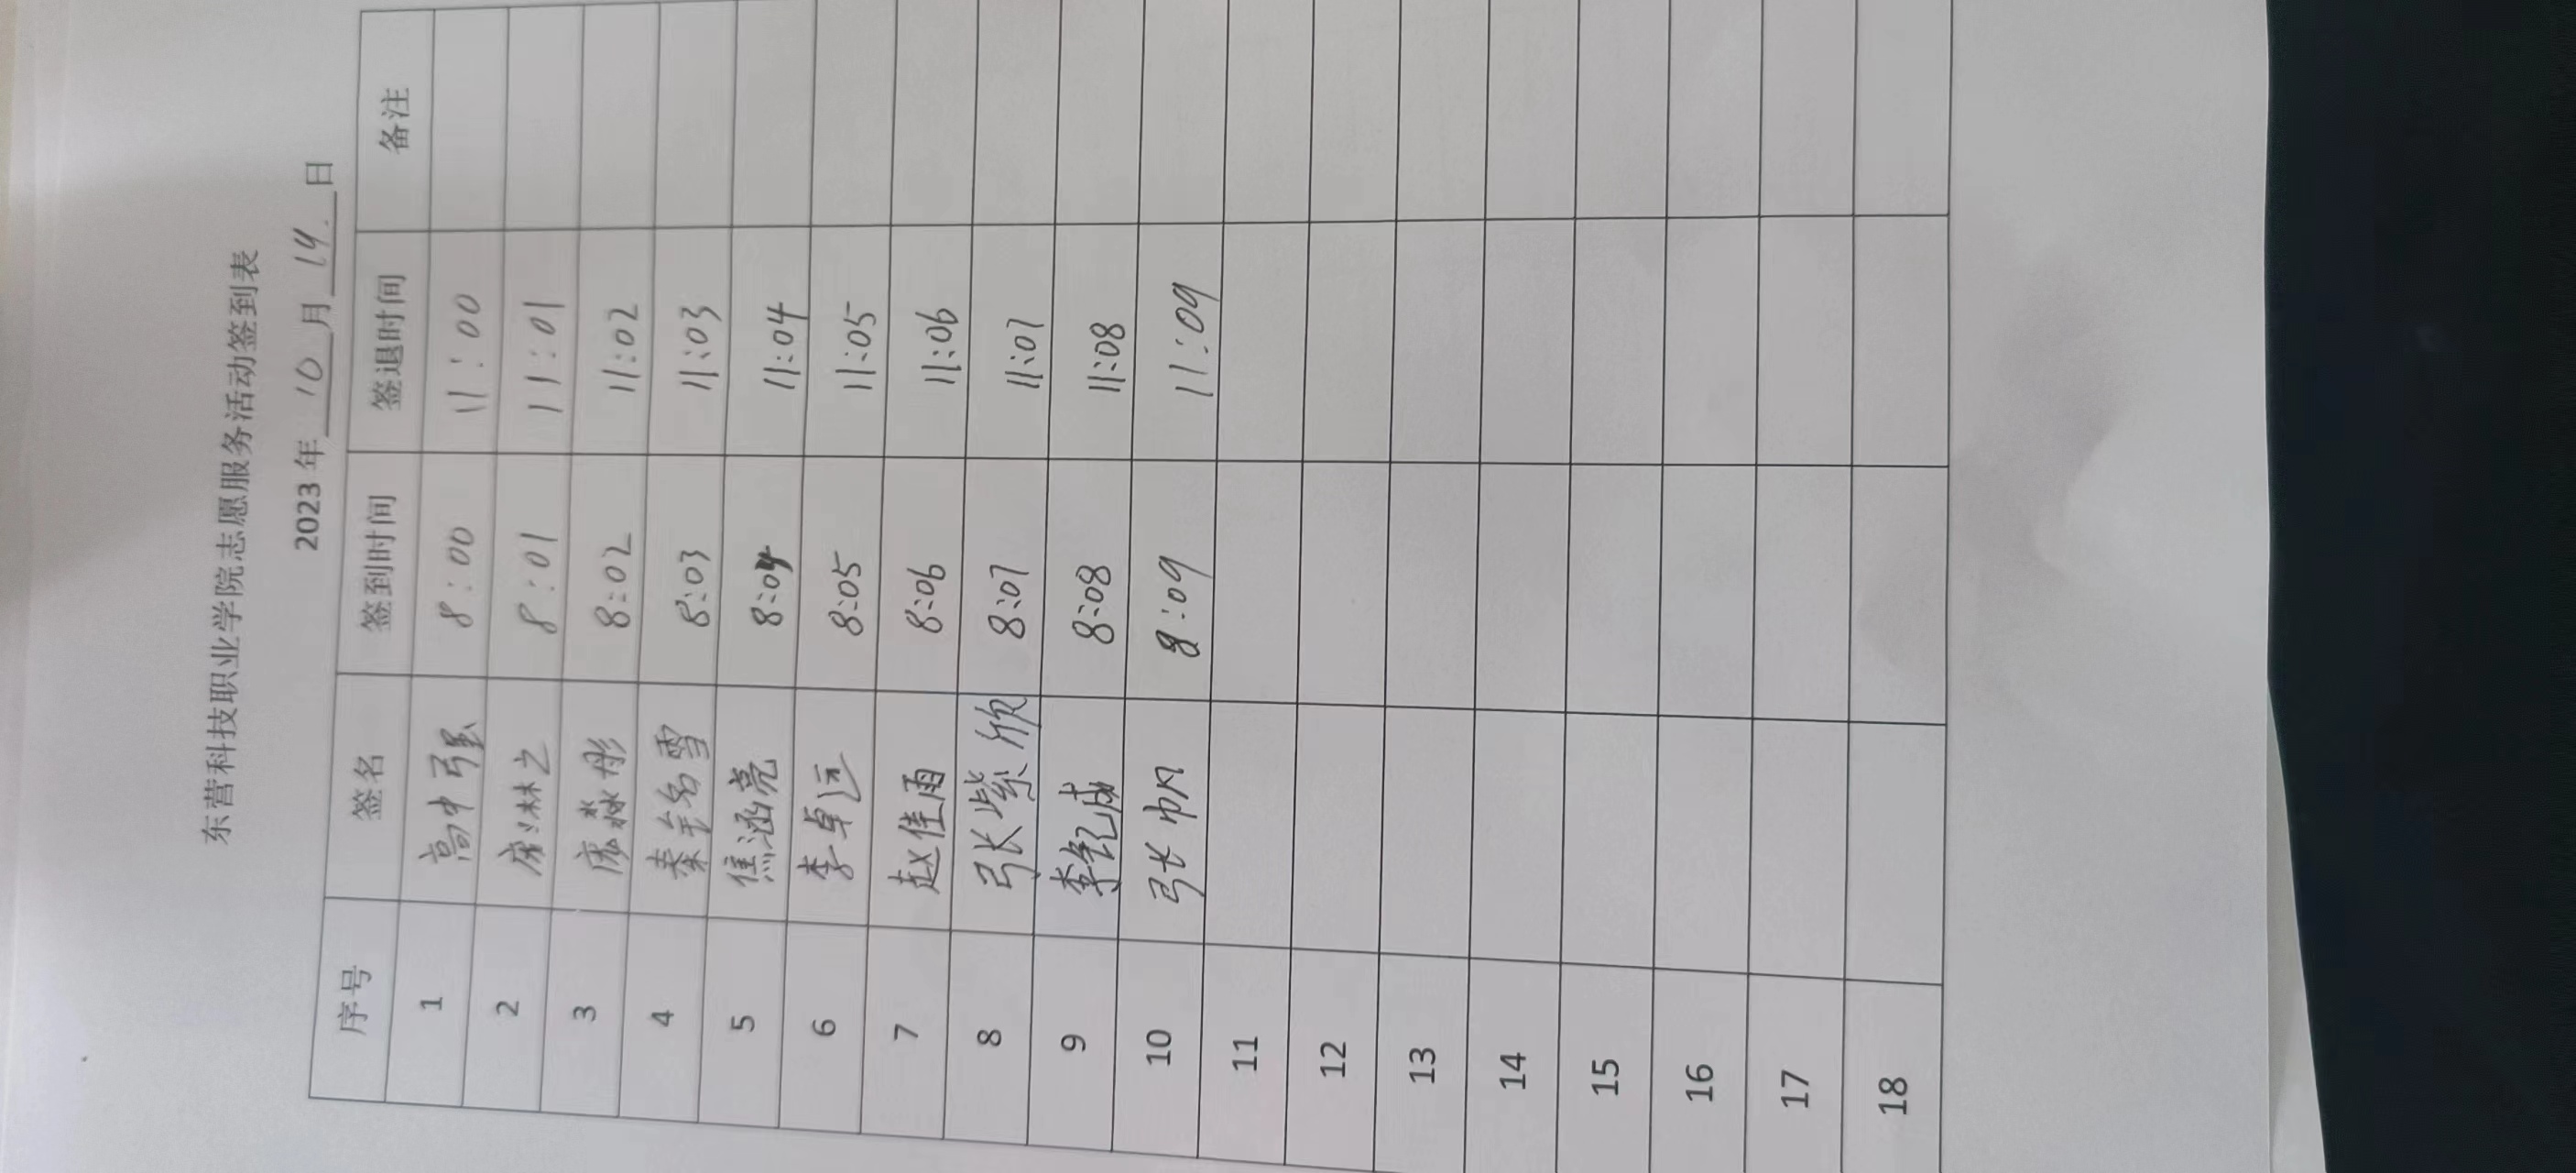 东营科技职业学院志愿服务活动签到表
2023 年 10 月 14 日
序号 签名 签到时间 签退时间 备注
1 高中强 8:00 11:00
2 8:01 11:01
3 8:02 11:02
4 秦铭雪 8:03 11:03
5 焦涵亮 8:04 11:04
6 李卓远 8:05 11:05
7 赵佳雨 8:06 11:06
8 张紫欣 8:07 11:07
9 8:08 11:08
10 张帅风 8:09 11:09
11
12
13
14
15
16
17
18